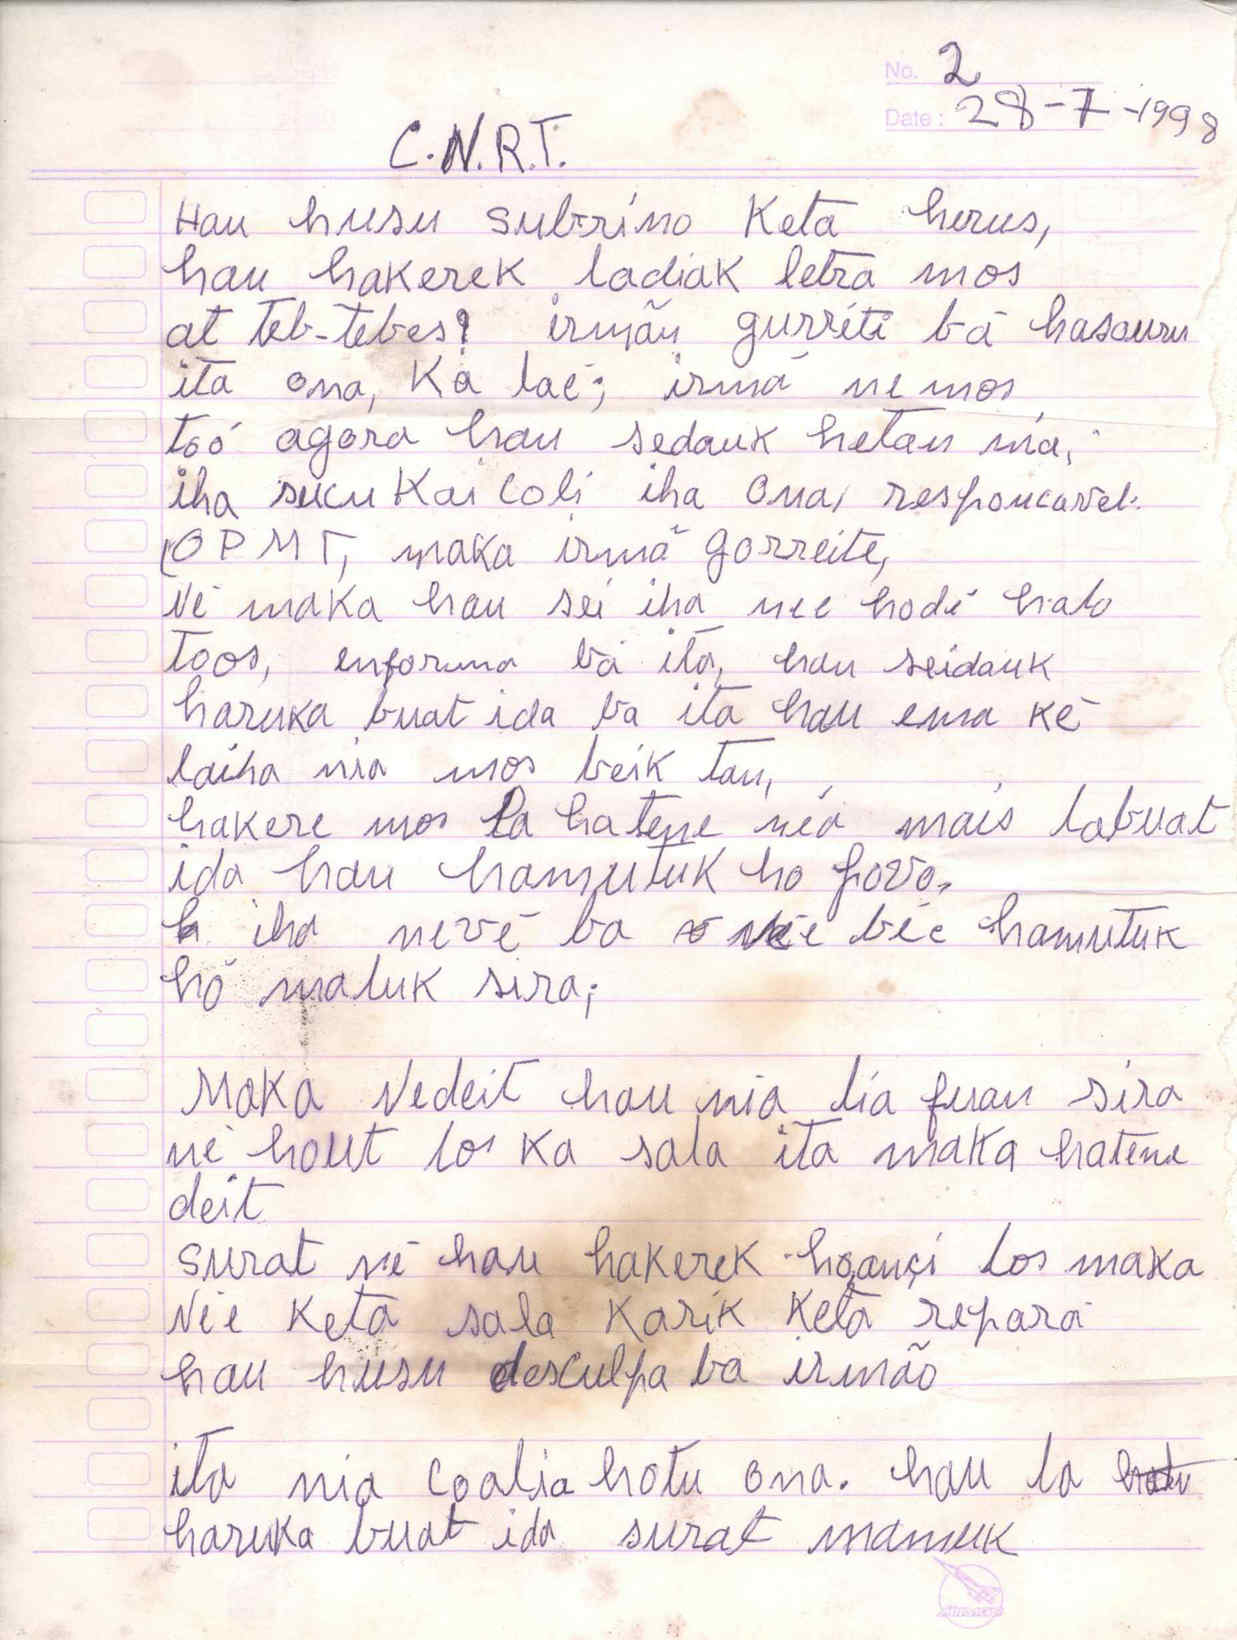 No. 2
Date: 28-7-1998
C.N.R.T.
Hau husu subrino Keta herus,
hau hakerek ladiak letra mos
at teb-tebes! irmãn gurriti bá hasouru
ita ona, Ka laé; irmá ne mos
toó agora hau sedauk hetan nia;
iha sucu Kai Coli iha Ona, responcavel
OPMT, maka irmã gorreite,
Né maka hau sei iha nee hodi halo
toos, enforma bá ita, hau seidauk
haruka buat ida ba ita hau ema Ké
laiha nia mos beik tan,
hakere mos la hatene néá mais labuat
ida hau hamutuk ho povo,
iha nevé ba née bée hamutuk
hó maluk sira;
Maka Nedeit hau nia lia fuan sira
né hout los Ka sala ita maka hatene
deit
Surat né hau hakerek hoançi los maka
Née Keta sala Karik Keta repara
hau husu desculpa ba irmão
ita nia coalia hotu ona. hau la
haruka buat ida surat mamuk